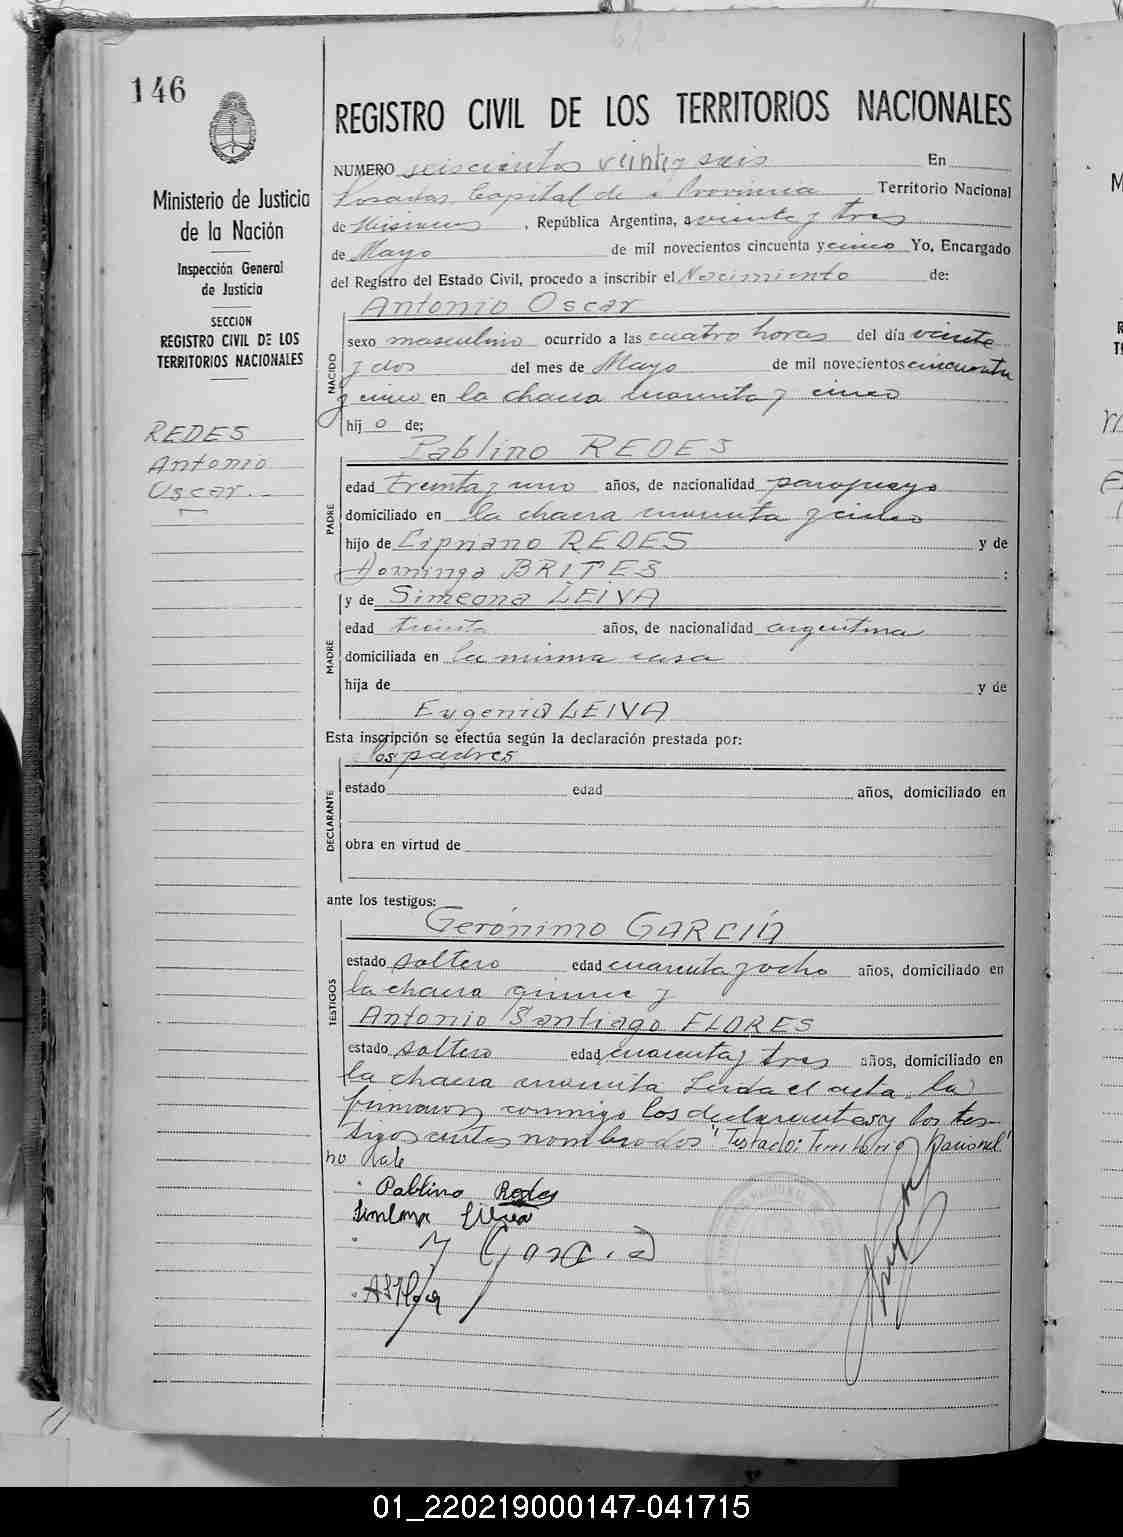 146
Ministerio de Justicia
de la Nación
Inspección General
de Justicia
SECCION
REGISTRO CIVIL DE LOS
TERRITORIOS NACIONALES
REDES
Antonio
Oscar.-
REGISTRO CIVIL DE LOS TERRITORIOS NACIONALES
NUMERO seiscientos veinte y seis En
Posadas, Capital de la Provincia Territorio Nacional
de Misiones , República Argentina, a veinte y tres
de Mayo de mil novecientos cincuenta y cinco Yo, Encargado
del Registro del Estado Civil, procedo a inscribir el Nacimiento de:
Antonio Oscar
NACIDO
sexo masculino ocurrido a las cuatro horas del día veinte
y dos del mes de Mayo de mil novecientos cincuenta
y cinco en la chacra cuarenta y cinco
hij o de;
Pablino REDES
PADRE
edad treinta y uno años, de nacionalidad paraguayo
domiciliado en la chacra cuarenta y cinco
hijo de Cipriano REDES y de
Dominga BRITES :
y de Simeona LEIVA
MADRE
edad treinta años, de nacionalidad argentina
domiciliada en la misma casa
hija de y de
Eugenia LEIVA
Esta inscripción se efectúa según la declaración prestada por:
los padres
DECLARANTE
estado edad años, domiciliado en
obra en virtud de
ante los testigos:
Gerónimo GARCÍA
TESTIGOS
estado soltero edad cuarenta y ocho años, domiciliado en
la chacra quince y
Antonio Santiago FLORES
estado soltero edad cuarenta y tres años, domiciliado en
la chacra cuarenta Leida el acta, la
firmaron conmigo los declarantes y los tes-
tigos antes nombrados "Testado: Territorio Nacional"
no vale
Pablino Redes
Simeona Leiva
García
01_220219000147-041715